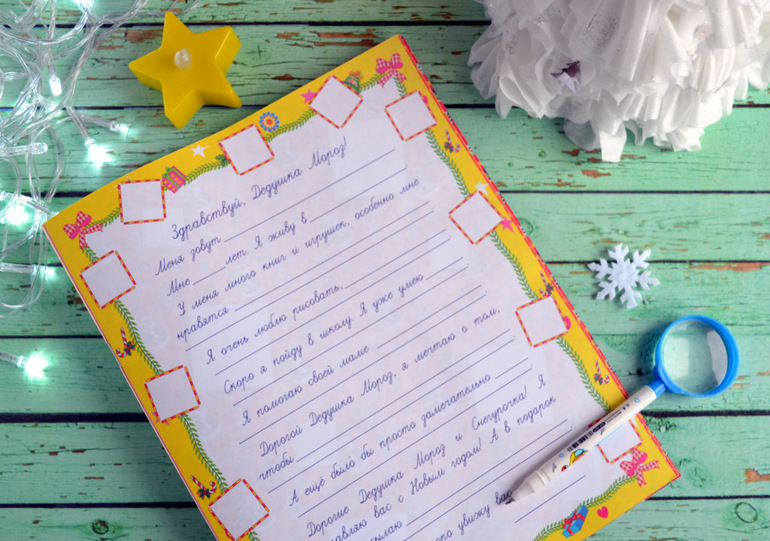 Здравствуй, Дедушка Мороз!
Меня зовут
Мне лет. Я живу в
У меня много книг и игрушек, особенно мне
нравятся
Я очень люблю рисовать,
Скоро я пойду в школу. Я уже умею
Я помогаю своей маме
Дорогой Дедушка Мороз, я мечтаю о том,
чтобы
А ещё было бы просто замечательно !
Дорогие Дедушка Мороз и Снегурочка! Я
вляю вас с Новым годом! А в подарок
сылаю
ро увижу вас